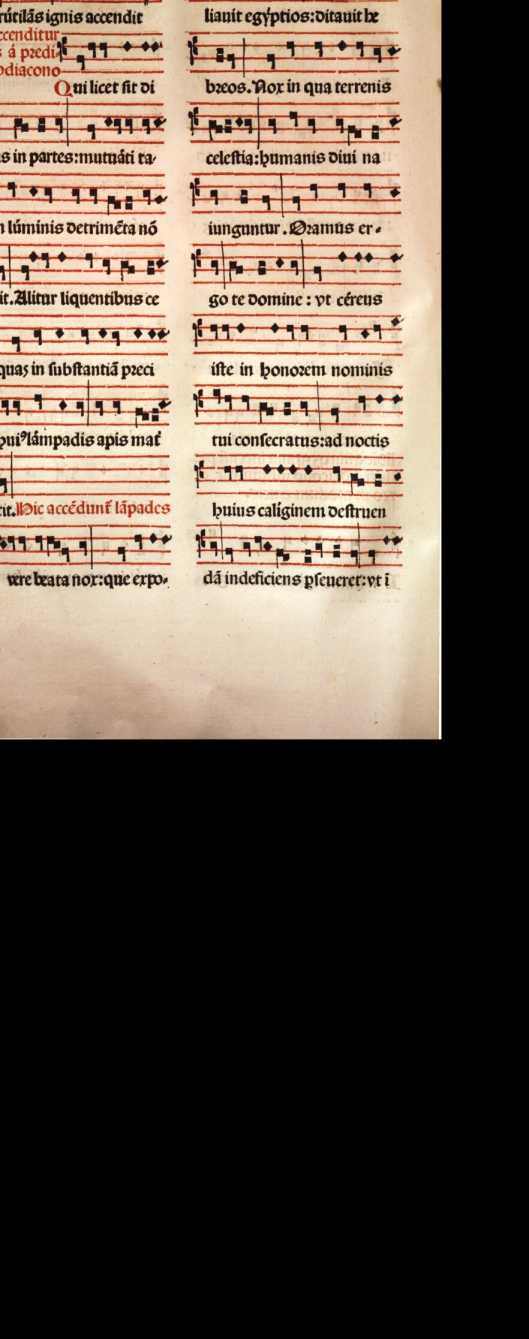 rútilãs ignis accendit
ccenditur
s á predi-
odiacono
Qui licet sit di
s in partes:mutuáti ta-
lúminis detrimẽta nõ
it.Alitur liquentibus ce
quas in substantiã preci
huiꝰ lámpadis apis mat̃
it.Hic accẽdunt̃ lãpades
vere beata nox:que expo-
liauit egýptios:ditauit he
breos.Nox in qua terrenis
celestia:humanis diui na
iunguntur.Oramus er-
go te domine: vt céreus
iste in honorem nominis
tui consecratus:ad noctis
huius calíginem destruen
dã indeficiens ꝑseueret:vt ĩ